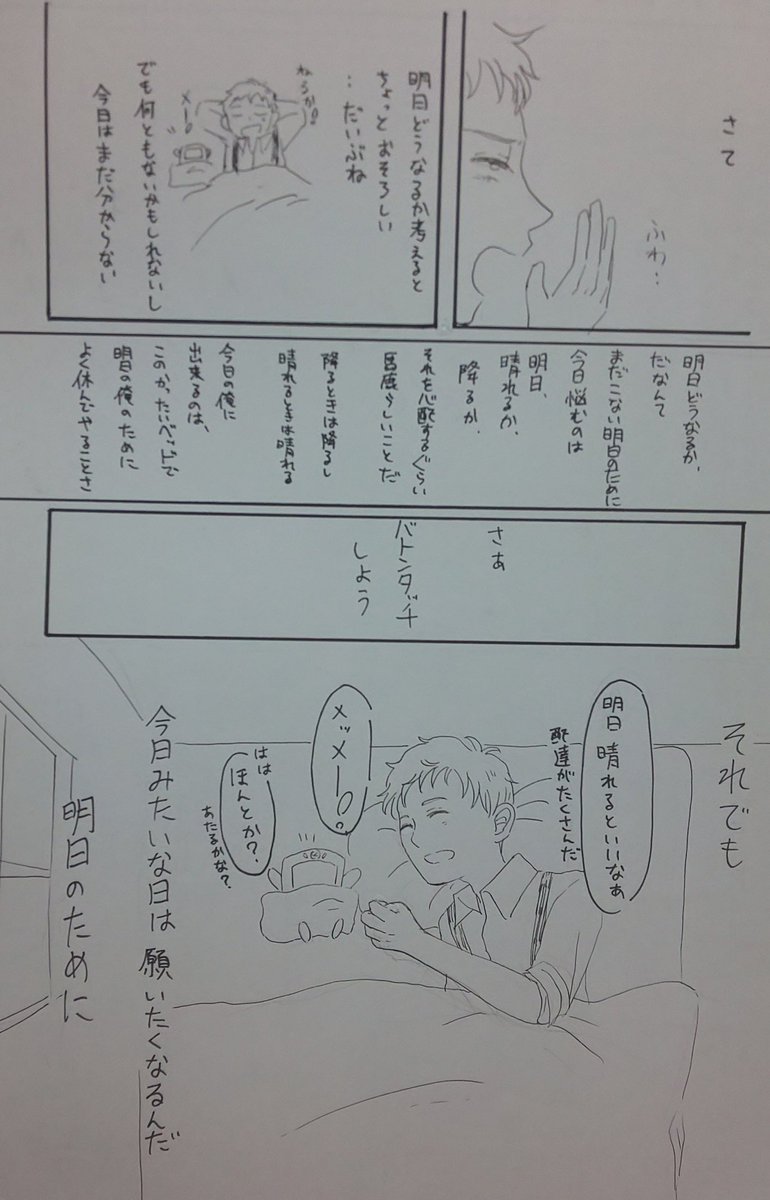 さて
ふわ…
明日どうなるか考えると
ちょっとおそろしい
…だいぶね
ねようか
メー
でも何ともないかもしれないし
今日はまだ分からない
明日どうなるか、
だなんて
まだこない明日のために
今日悩むのは
明日、
晴れるか、
降るか、
それを心配するぐらい
馬鹿らしいことだ
降るときは降るし
晴れるときは晴れる
今日の俺に
出来るのは、
このかったいベッドで
明日の俺のために
よく休んでやることさ
さぁ
バトンタッチ
しよう
それでも
明日 晴れるといいなぁ
配達がたくさんだ
メッメー。
はは
ほんとか?
あたるかな?
今日みたいな日は 願いたくなるんだ
明日のために